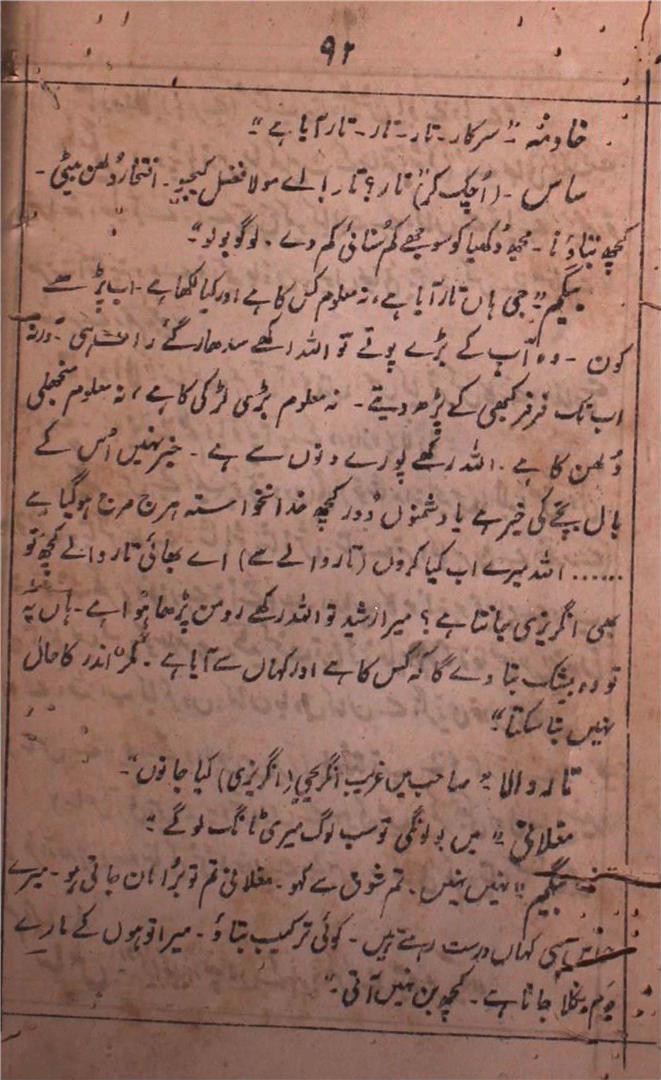 ۹۲
خادمہ "سرکار۔ تار۔ تار۔ تار آیا ہے"۔
ساس ۔ (اُچک کر) "تار؟ تار! اے مولا فضل کیجیو۔ افتخار دُلھن بیٹی۔
کچھ بتاؤ نا۔ مجھ دُکھیا کو سوجھے کم سُنائی کم دے۔ لوگو بولو"۔
بیگم "جی ہاں تار آیا ہے، نہ معلوم کس کا ہے اور کیا لکھا ہے۔ اب پڑھے
کون ۔ وہ آپ کے بڑے پوتے تو اللہ رکھے سدھار گئے ۔ ورنہ
اب تک فرفر کبھی کے پڑھ دیتے۔ نہ معلوم بڑی لڑکی کا ہے، نہ معلوم منجھلی
دُلھن کا ہے۔ اللہ رکھے پورے دنوں سے ہے۔ خبر نہیں اُس کے
بال بچے کی خبر ہے یا دشمنوں دُور کچھ خدانخواستہ ہرج مرج ہو گیا ہے
...... اللہ میرے اب کیا کروں (تار والے سے) اے بھائی تار والے کچھ تو
بھی انگریزی جانتا ہے؟ میرا رشید تو اللہ رکھے رومن پڑھا ہُوا ہے۔ ہاں یہ
تو وہ بیشک بتا دے گا کہ کس کا ہے اور کہاں سے آیا ہے۔ مگر اندر کا حال
نہیں بتا سکتا"۔
تار والا "صاحب میں غریب انگریجی (انگریزی) کیا جانوں"۔
مغلانی "میں بولونگی تو سب لوگ میری ٹانگ لو گے"۔
بیگم "نہیں نہیں۔ تم شوق سے کہو۔ مغلانی تم تو بُرا مان جاتی ہو۔ میرے
حواس ہی کہاں درست رہتے ہیں۔ کوئی ترکیب بتاؤ۔ میرا تو ہوں کے مارے
دم نکلا جاتا ہے۔ کچھ بن نہیں آتی"۔